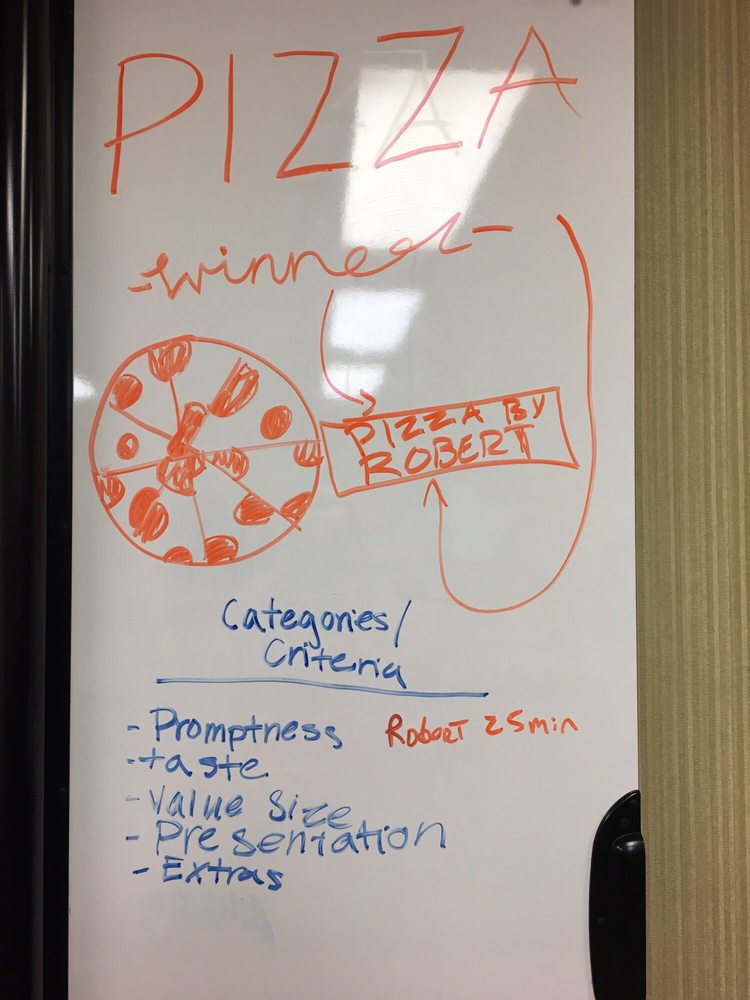 PIZZA
-winner-
PIZZA BY
ROBERT
Categories/
Criteria
- Promptness Robert 25min
- taste
- Value Size
- Presentation
- Extras